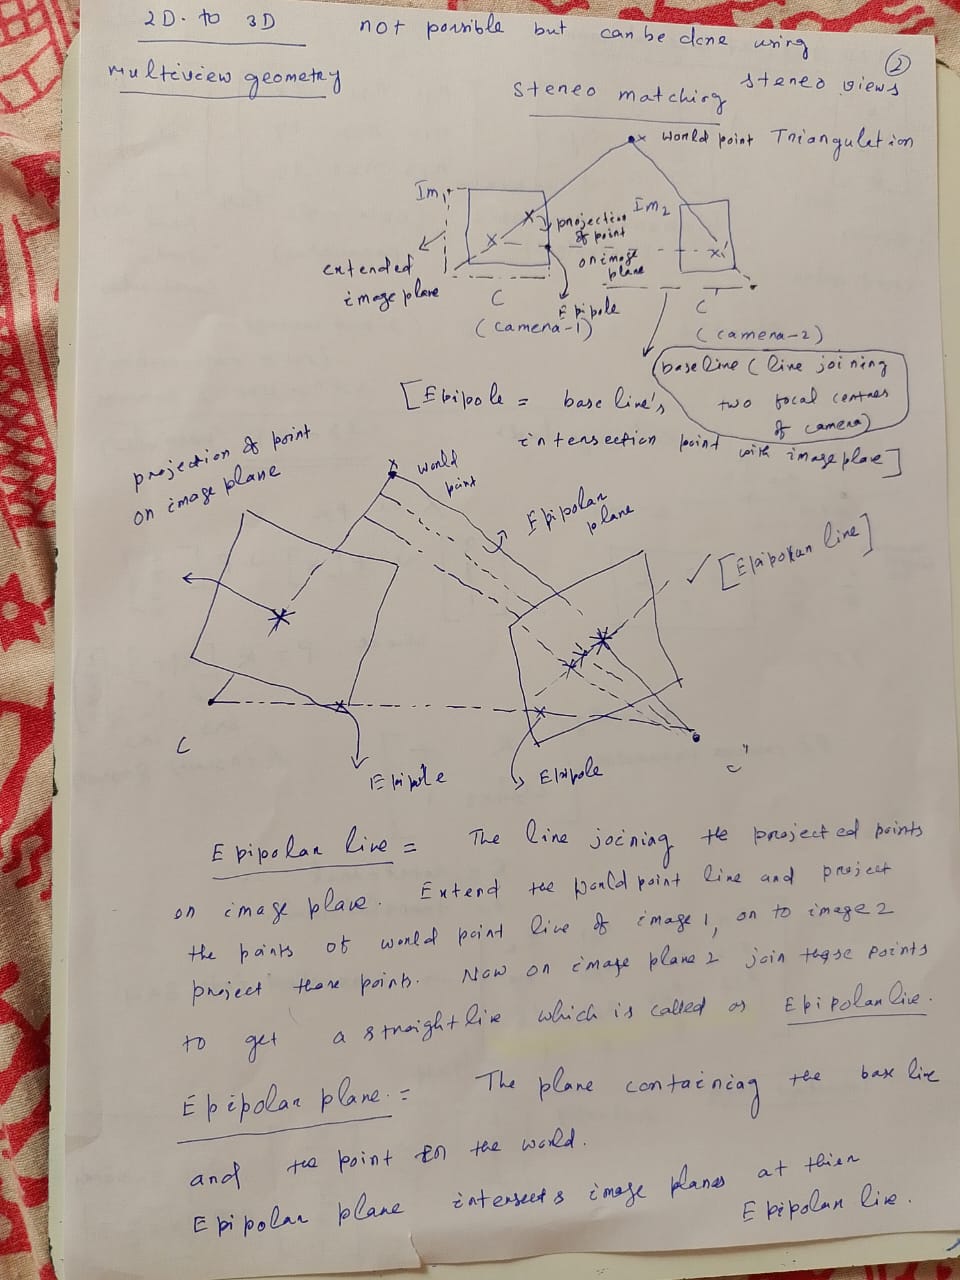 2D. to 3D not possible but can be done using
②
Multiview geometry stereo views
Stereo matching
world point Triangulation
Im1
Im2
projection
of point
on image
plane
extended
image plane
C
Epipole
C'
(camera-1)
(camera-2)
baseline (line joining
two focal centres
of camera)
[Epipole = base line's
intersection point with image plane]
projection of point
on image plane
world
point
Epipolar
plane
[Epipolar line]
C
Epipole
Epipole
C'
Epipolar line = The line joining the projected points
on image plane. Extend the world point line and project
the points of world point line of image 1, on to image 2
project those points. Now on image plane 2 join these points
to get a straight line which is called as Epipolar line.
Epipolar plane. = The plane containing the base line
and the point in the world.
Epipolar plane intersects image planes at their
Epipolar line.